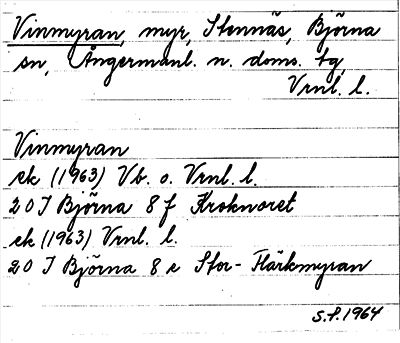 Vinmyran, myr, Stennäs, Björna
sn, Ångermanl. n. doms. tg,
Vrnl. l.
Vinmyran
ek (1963) Vb. o. Vrnl. l.
20 I Björna 8 f Kroknoret
ek (1963) Vrnl. l.
20 I Björna 8 e Stor-Flärkmyran
S.F. 1964